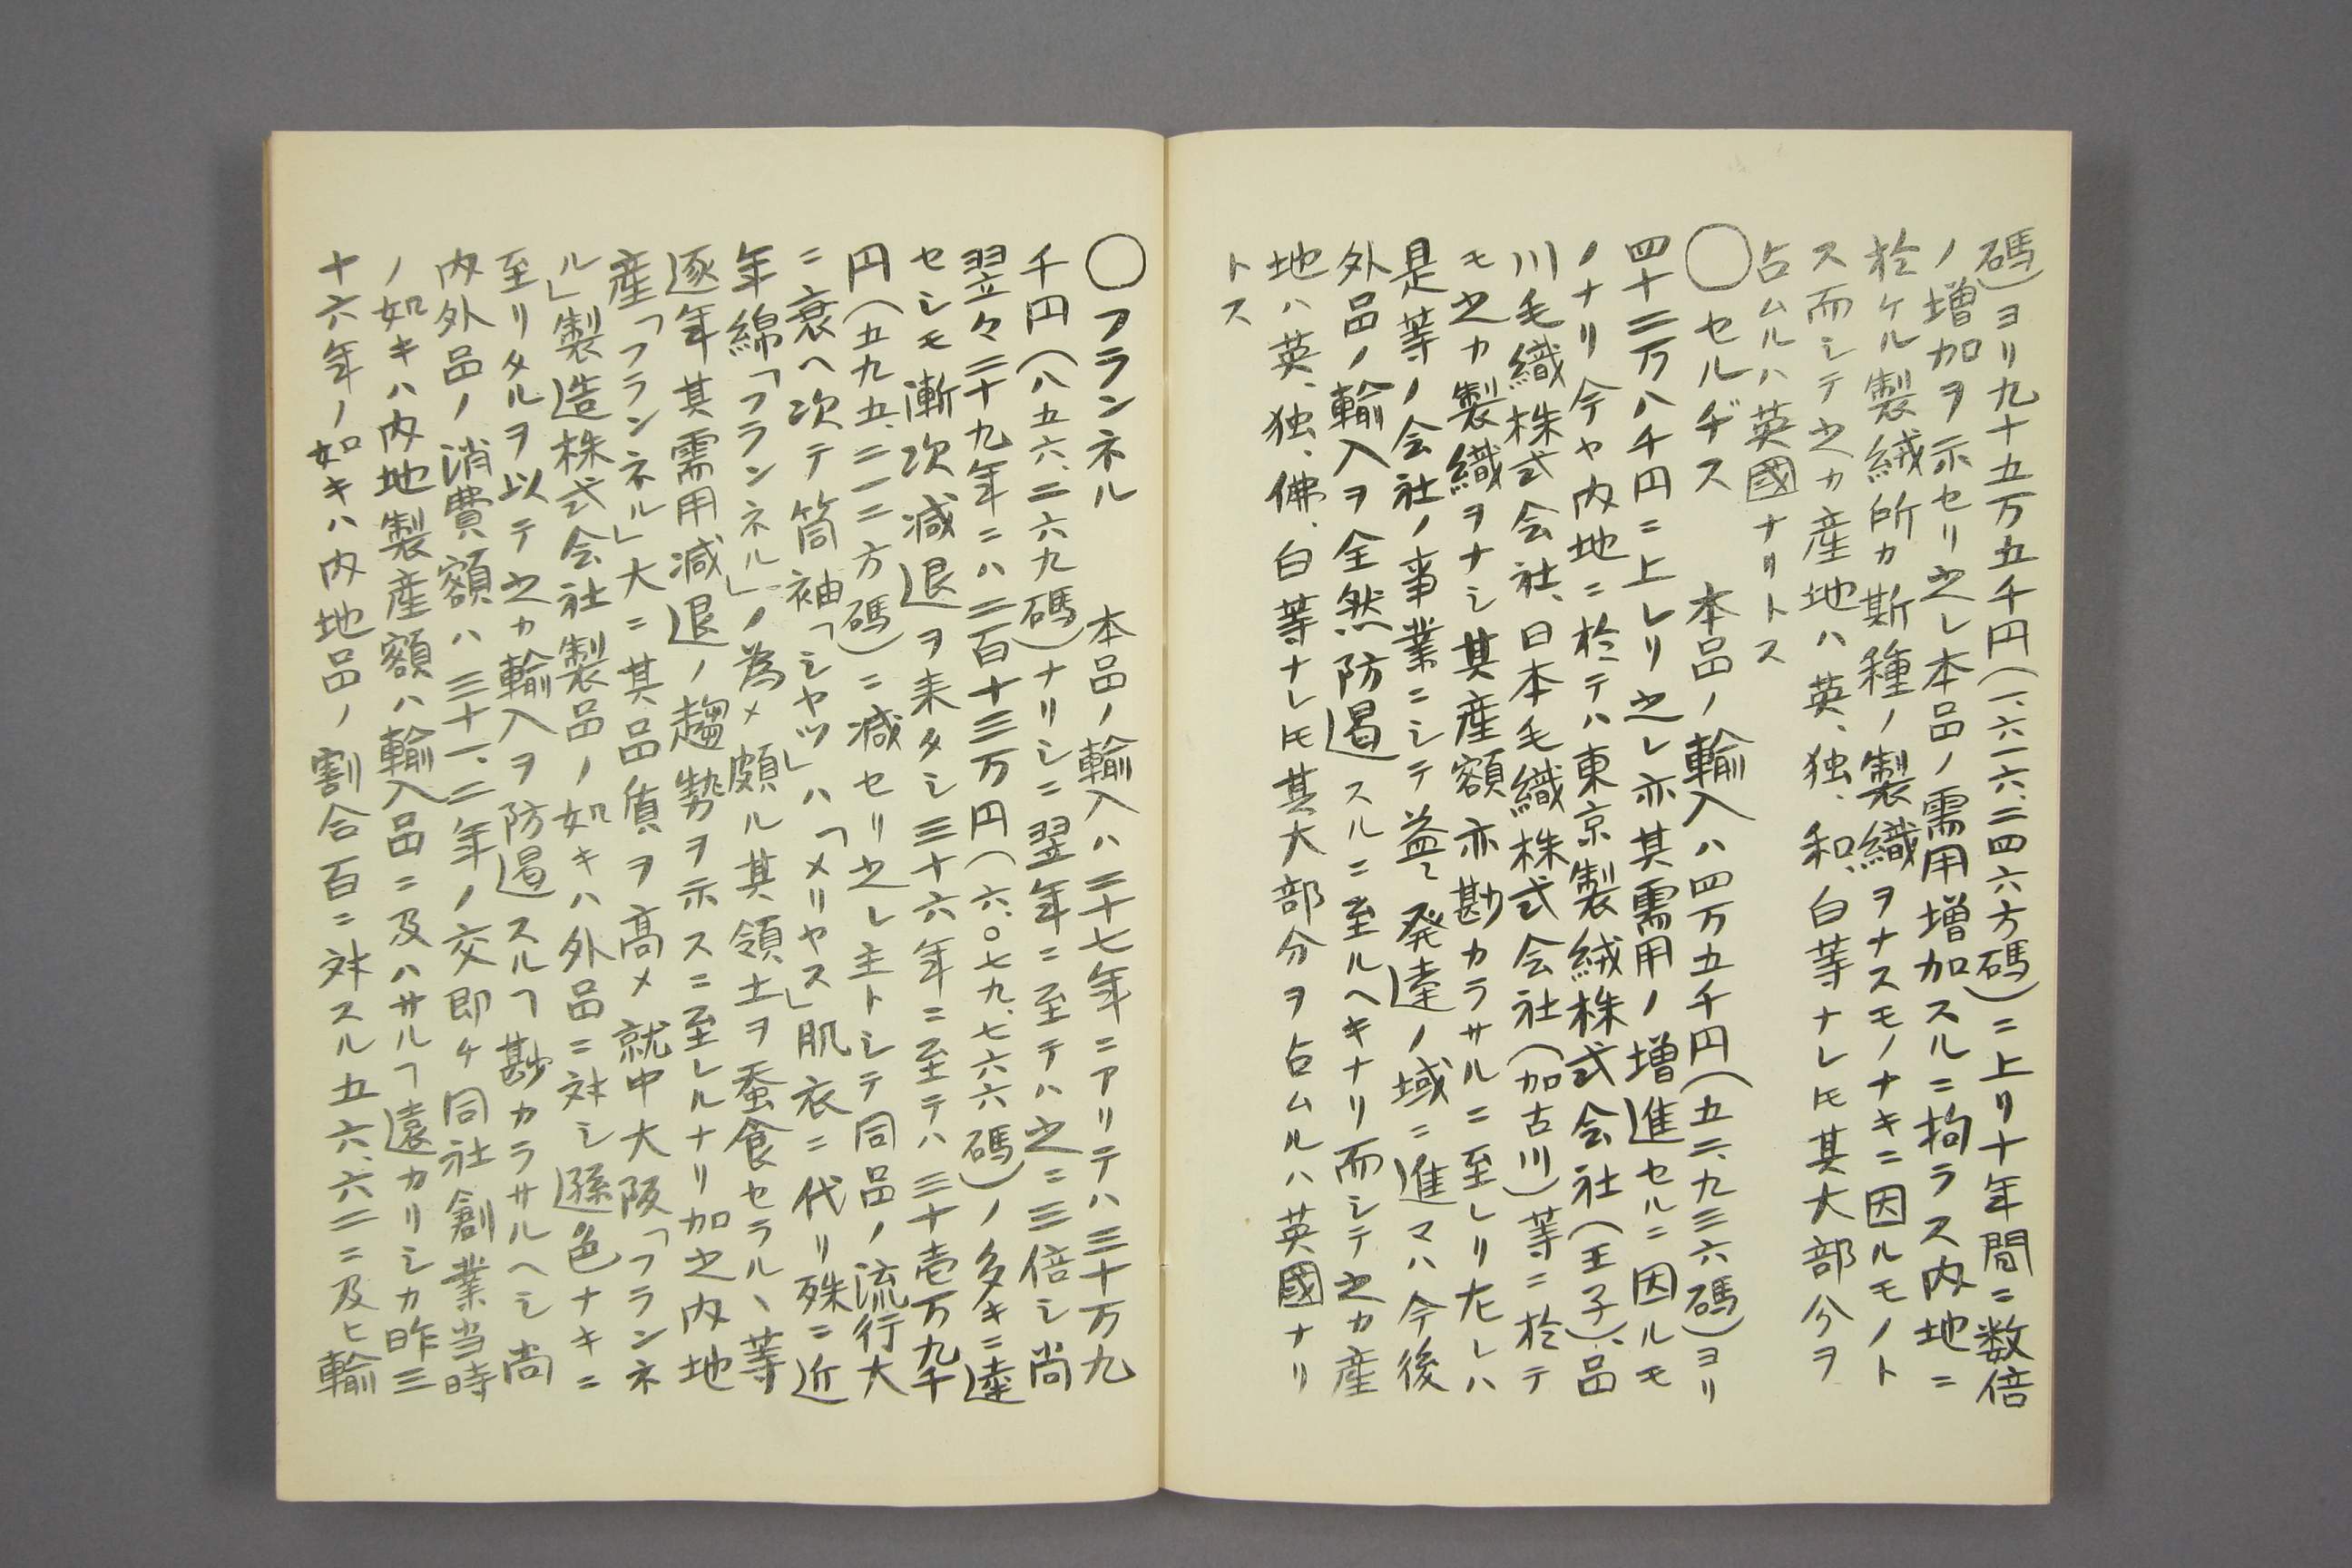 碼)ヨリ九十五万五千円(一、六一六、二四六方碼)ニ上リ十年間ニ数倍
ノ増加ヲ示セリ之レ本品ノ需用増加スルニ拘ラス内地ニ
於ケル製絨所カ斯種ノ製織ヲナスモノナキニ因ルモノト
ス而シテ之カ産地ハ英、独、和、白等ナレ𪜈其大部分ヲ
占ムルハ英國ナリトス
〇セルヂス　本品ノ輸入ハ四万五千円(五二、九三六碼)ヨリ
四十二万八千円ニ上レリ之レ亦其需用ノ増進セルニ因ルモ
ノナリ今ヤ内地ニ於テハ東京製絨株式会社(王子)、品
川毛織株式会社、日本毛織株式会社(加古川)等ニ於テ
モ之カ製織ヲナシ其産額亦尠カラサルニ至レリ左レハ
是等ノ会社ノ事業ニシテ益〻発達ノ域ニ進マハ今後
外品ノ輸入ヲ全然防遏スルニ至ルヘキナリ而シテ之カ産
地ハ英、独、佛、白等ナレ𪜈其大部分ヲ占ムルハ英國ナリ
トス
〇フランネル　本品ノ輸入ハ二十七年ニアリテハ三十万九
千円(八五六、二六九碼)ナリシニ翌年ニ至テハ之ニ三倍シ尚
翌々二十九年ニハ二百十三万円(六、〇七九、七六六碼)ノ多キニ達
セシモ漸次減退ヲ来タシ三十六年ニ至テハ三十壱万九千
円(五九五、二一二方碼)ニ減セリ之レ主トシテ同品ノ流行大
ニ衰ヘ次テ筒袖「シヤツ」ハ「メリヤス」肌衣ニ代リ殊ニ近
年綿「フランネル」ノ為メ頗ル其領土ヲ蚕食セラルヽ等
逐年其需用減退ノ趨勢ヲ示スニ至レルナリ加之内地
産「フランネル」大ニ其品質ヲ高メ就中大阪「フランネ
ル」製造株式会社製品ノ如キハ外品ニ対シ遜色ナキニ
至リタルヲ以テ之カ輸入ヲ防遏スルヿ尠カラサルヘシ尚
内外品ノ消費額ハ三十一、二年ノ交即ケ同社創業当時
ノ如キハ内地製産額ハ輸入品ニ及ハサルヿ遠カリシカ昨三
十六年ノ如キハ内地品ノ割合百ニ対スル五六、六二ニ及ヒ輸